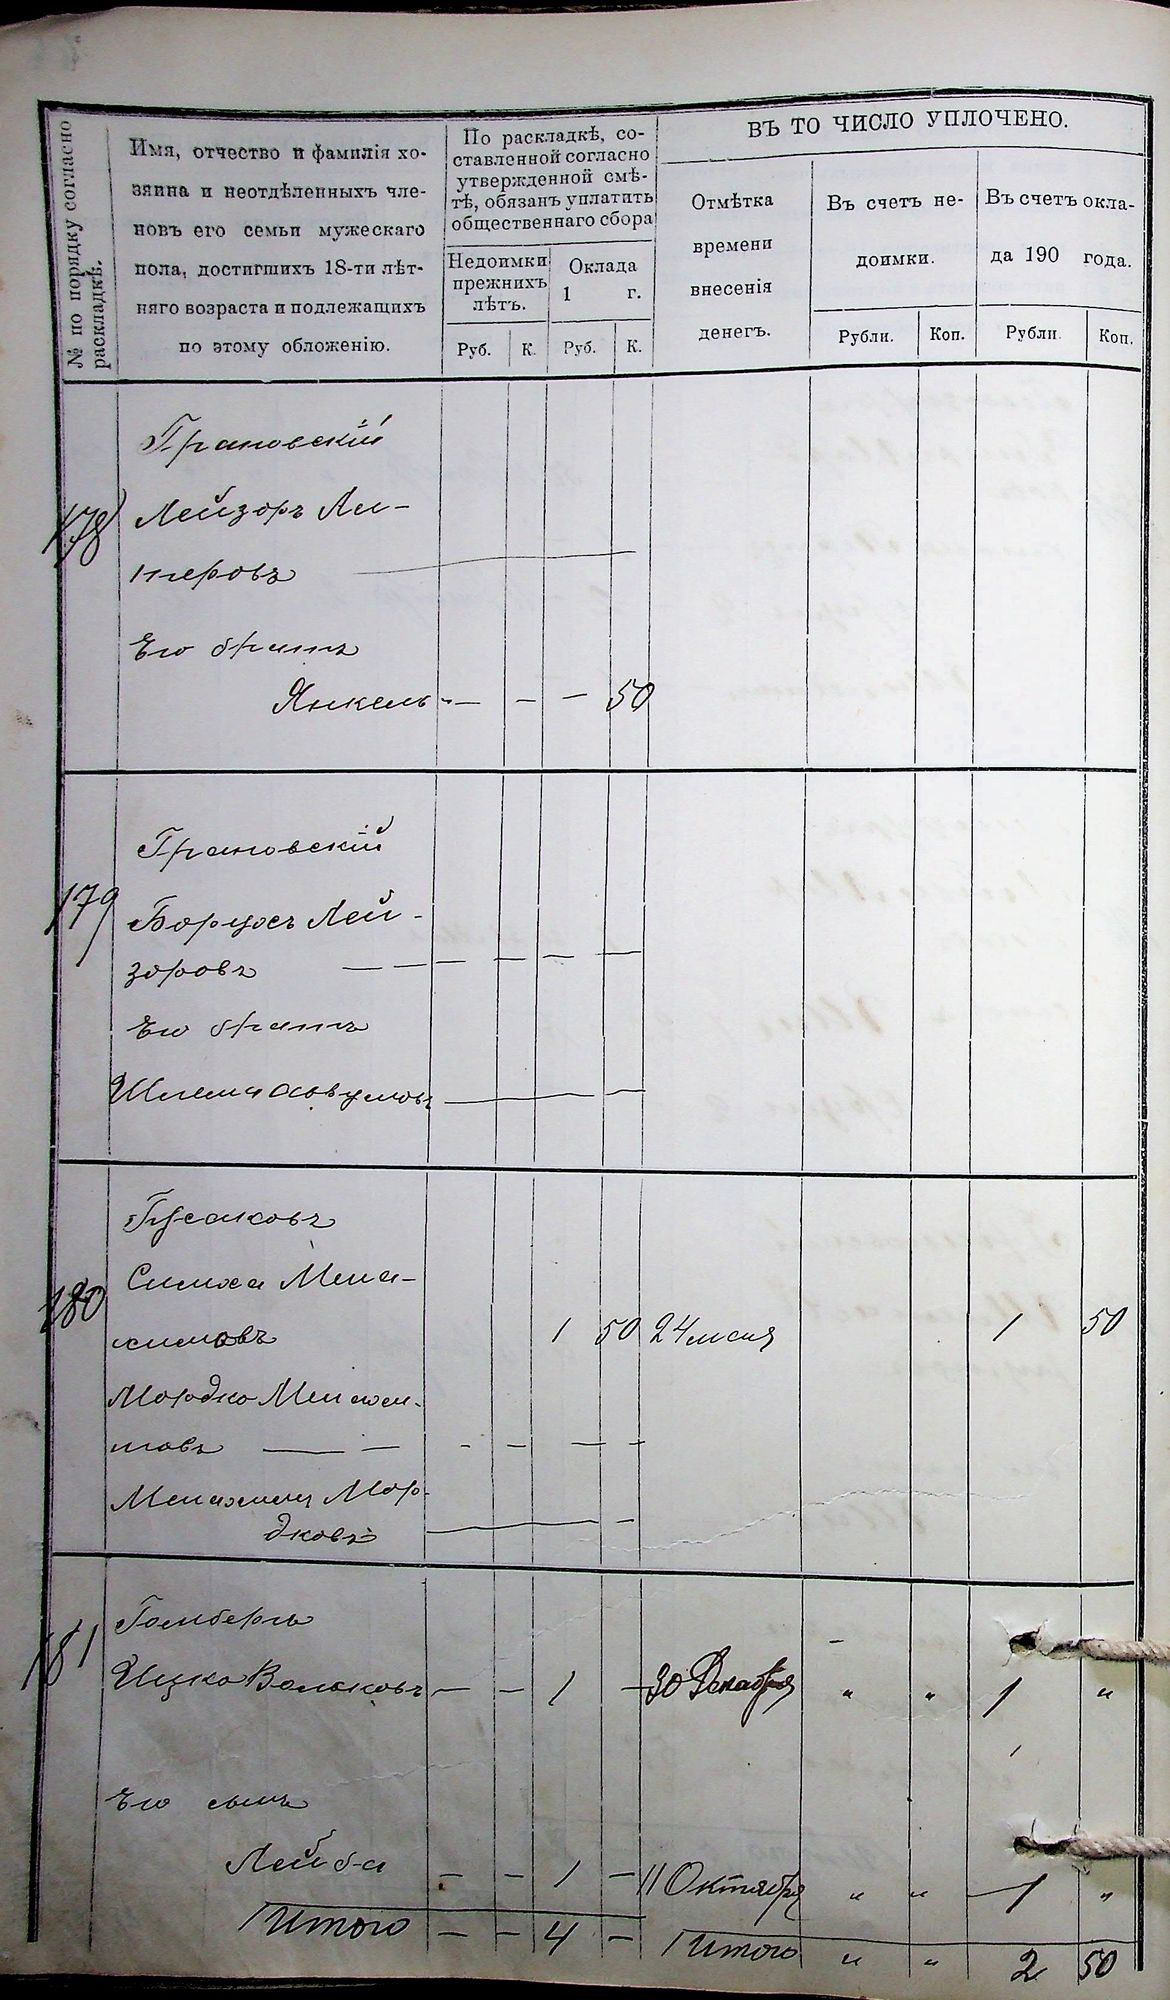 № по порядку согласно
раскладкѣ.
Имя, отчество и фамилія хо-
зяина и неотдѣленныхъ чле-
новъ его семьи мужескаго
пола, достигшихъ 18-ти лѣт-
няго возраста и подлежащихъ
по этому обложенію.
По раскладкѣ, со-
ставленной согласно
утвержденной смѣ-
тѣ, обязанъ уплатить
общественнаго сбора
Недоимки
прежнихъ
лѣтъ.
Оклада
1 г.
Руб. К. Руб. К.
ВЪ ТО ЧИСЛО УПЛОЧЕНО.
Отмѣтка
времени
внесенія
денегъ.
Въ счетъ не-
доимки.
Въ счетъ окла-
да 190 года.
Рубли. Коп. Рубли. Коп.
Грановскій
178 Лейзоръ Ли-
перовъ
Его братъ
Янкель - - - 50
Грановскій
179 Борухъ Лей-
зоровъ — — — — — —
Его братъ
Шлема
Гусаковъ
180 Симха Мена-
химовъ 1 50 24 1 50
Мордко Менахи-
мовъ — — - - — -
Менахимъ Мор-
дковъ — -
Гомбергъ
181 Ицко Вольковъ — - 1 — 30 Декабря " " 1 "
Его сынъ
Лейба — - 1 — 11 Октября " " 1 "
Итого — - 4 — Итого " " 2 50